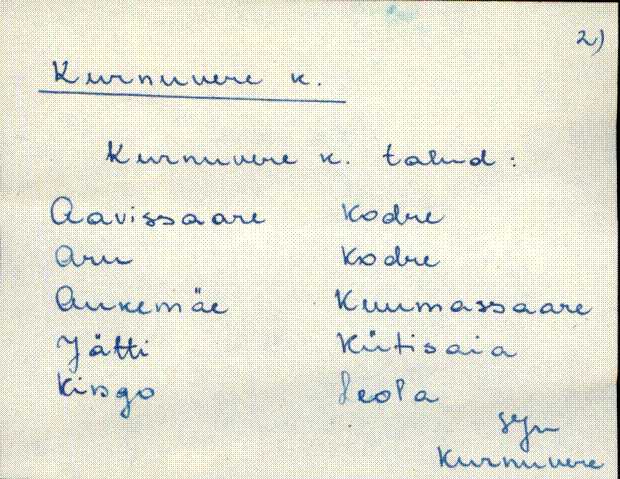 2)
Kurnuvere k.
Kurnuvere k. talud:
Aavissaare Kodre
Aru Kodre
Aukemäe Kuumassaare
Jätti Kütisaia
Kingo Leola
Kurnuvere